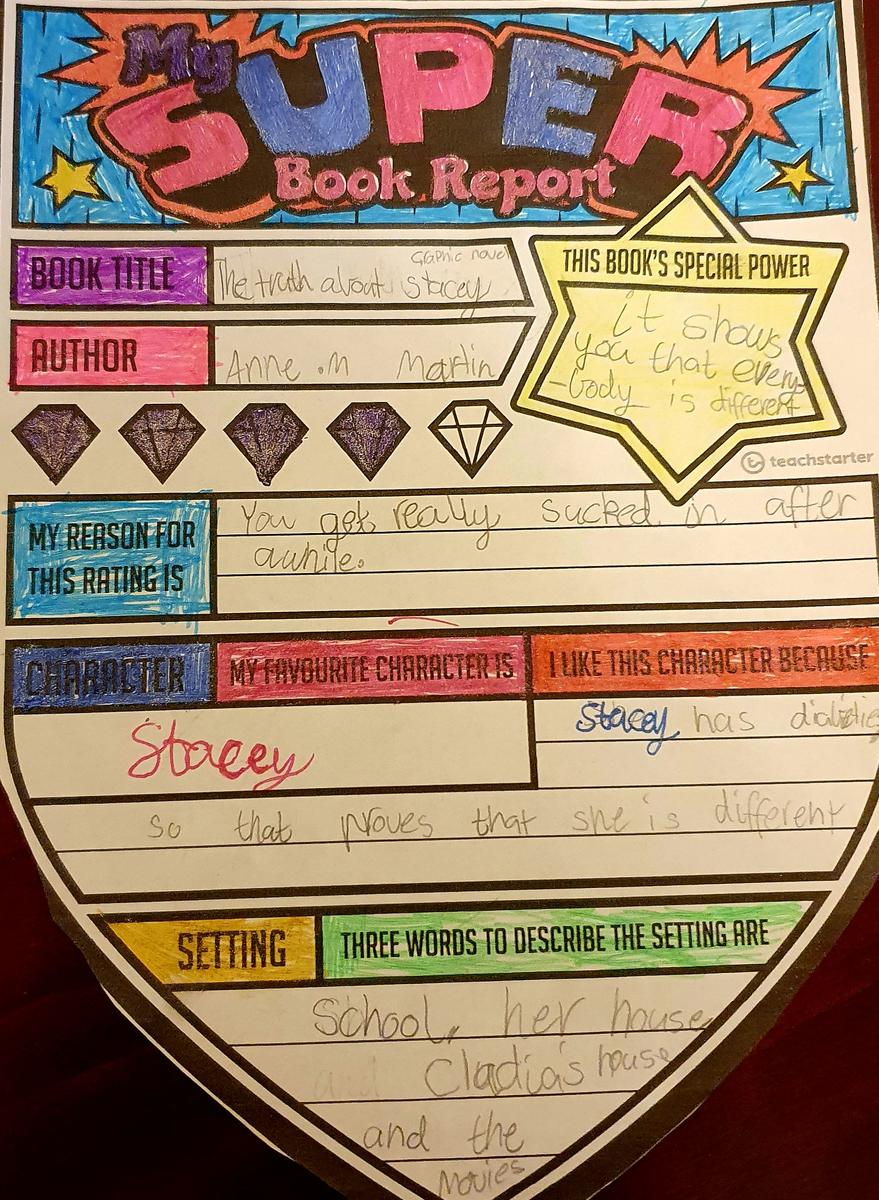 My
SUPER
Book Report
BOOK TITLE
Graphic novel
The truth about stacey
THIS BOOK'S SPECIAL POWER
it shows
you that every-
-body is different
AUTHOR
Anne .M Martin
teachstarter
MY REASON FOR
THIS RATING IS
You get really sucked in after
awhile.
CHARACTER
MY FAVOURITE CHARACTER IS
I LIKE THIS CHARACTER BECAUSE
Stacey
Stacey has
so that proves that she is different
SETTING
THREE WORDS TO DESCRIBE THE SETTING ARE
School, her house
Cladia's house
and the
Movies